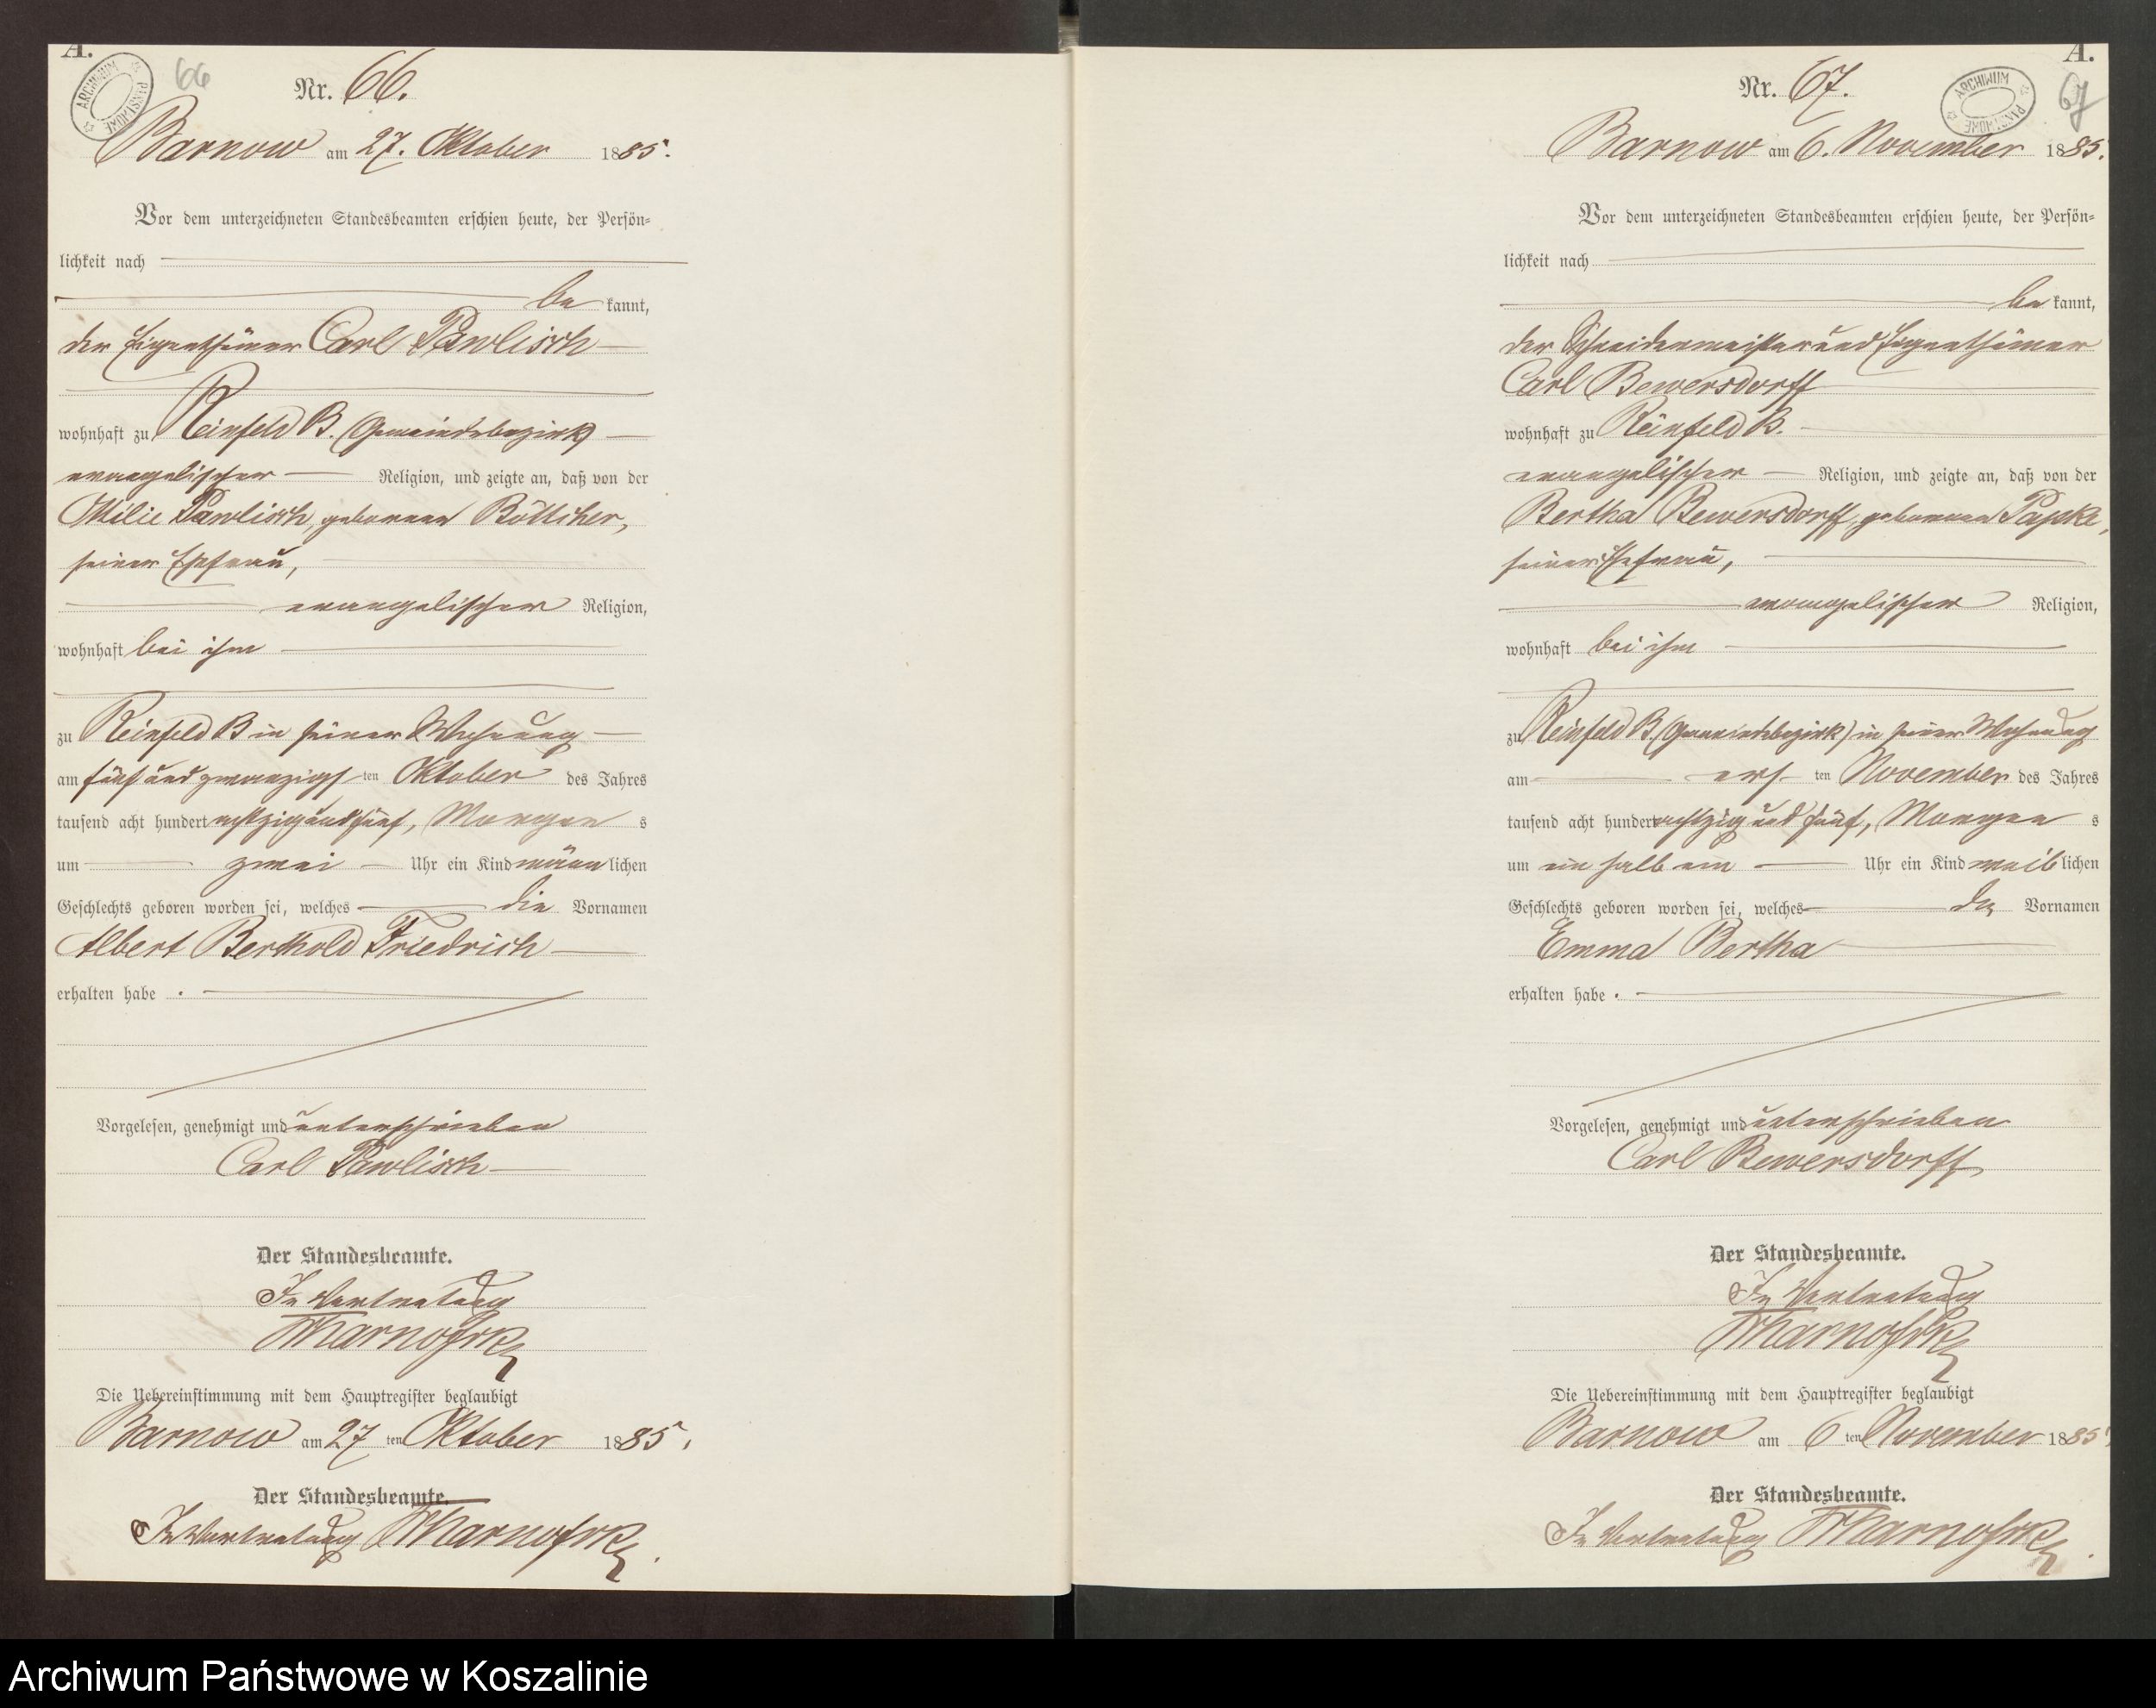 A.
ARCHIWUM PAŃSTWOWE
66
Nr. 66.
Barnow am 27. Oktober 1885.
Vor dem unterzeichneten Standesbeamten erschien heute, der Persön-
lichkeit nach
be kannt,
der Eigenthümer Carl Pawlisch
wohnhaft zu Reinfeld B. (Gemeindebezirk)
evangelischer Religion, und zeigte an, daß von der
Ottilie Pawlisch, geborenen Bötticher,
seiner Ehefrau,
evangelischer Religion,
wohnhaft bei ihm
zu Reinfeld B in seiner Wohnung
am fünf und zwanzigs ten Oktober des Jahres
tausend acht hundert achtzig und fünf, Morgen s
um zwei Uhr ein Kind männ lichen
Geschlechts geboren worden sei, welches die Vornamen
Albert Berthold Friedrich
erhalten habe .
Vorgelesen, genehmigt und unterschrieben
Carl Pawlisch
Der Standesbeamte.
In Vertretung
Die Uebereinstimmung mit dem Hauptregister beglaubigt
Barnow am 27 ten Oktober 1885.
Der Standesbeamte.
In Vertretung
A.
ARCHIWUM PAŃSTWOWE
67
Nr. 67.
Barnow am 6. November 1885.
Vor dem unterzeichneten Standesbeamten erschien heute, der Persön-
lichkeit nach
be kannt,
der Schneidermeister und Eigenthümer
Carl Bewersdorff
wohnhaft zu Reinfeld B.
evangelischer Religion, und zeigte an, daß von der
Bertha Bewersdorff, geborenen Papke,
seiner Ehefrau,
evangelischer Religion,
wohnhaft bei ihm
zu Reinfeld B. (Gemeindebezirk) in seiner Wohnung
am ers ten November des Jahres
tausend acht hundert achtzig und fünf, Morgen s
um ein halb ein Uhr ein Kind weib lichen
Geschlechts geboren worden sei, welches die Vornamen
Emma Bertha
erhalten habe .
Vorgelesen, genehmigt und unterschrieben
Carl Bewersdorff
Der Standesbeamte.
In Vertretung
Die Uebereinstimmung mit dem Hauptregister beglaubigt
Barnow am 6 ten November 1885.
Der Standesbeamte.
In Vertretung
Archiwum Państwowe w Koszalinie